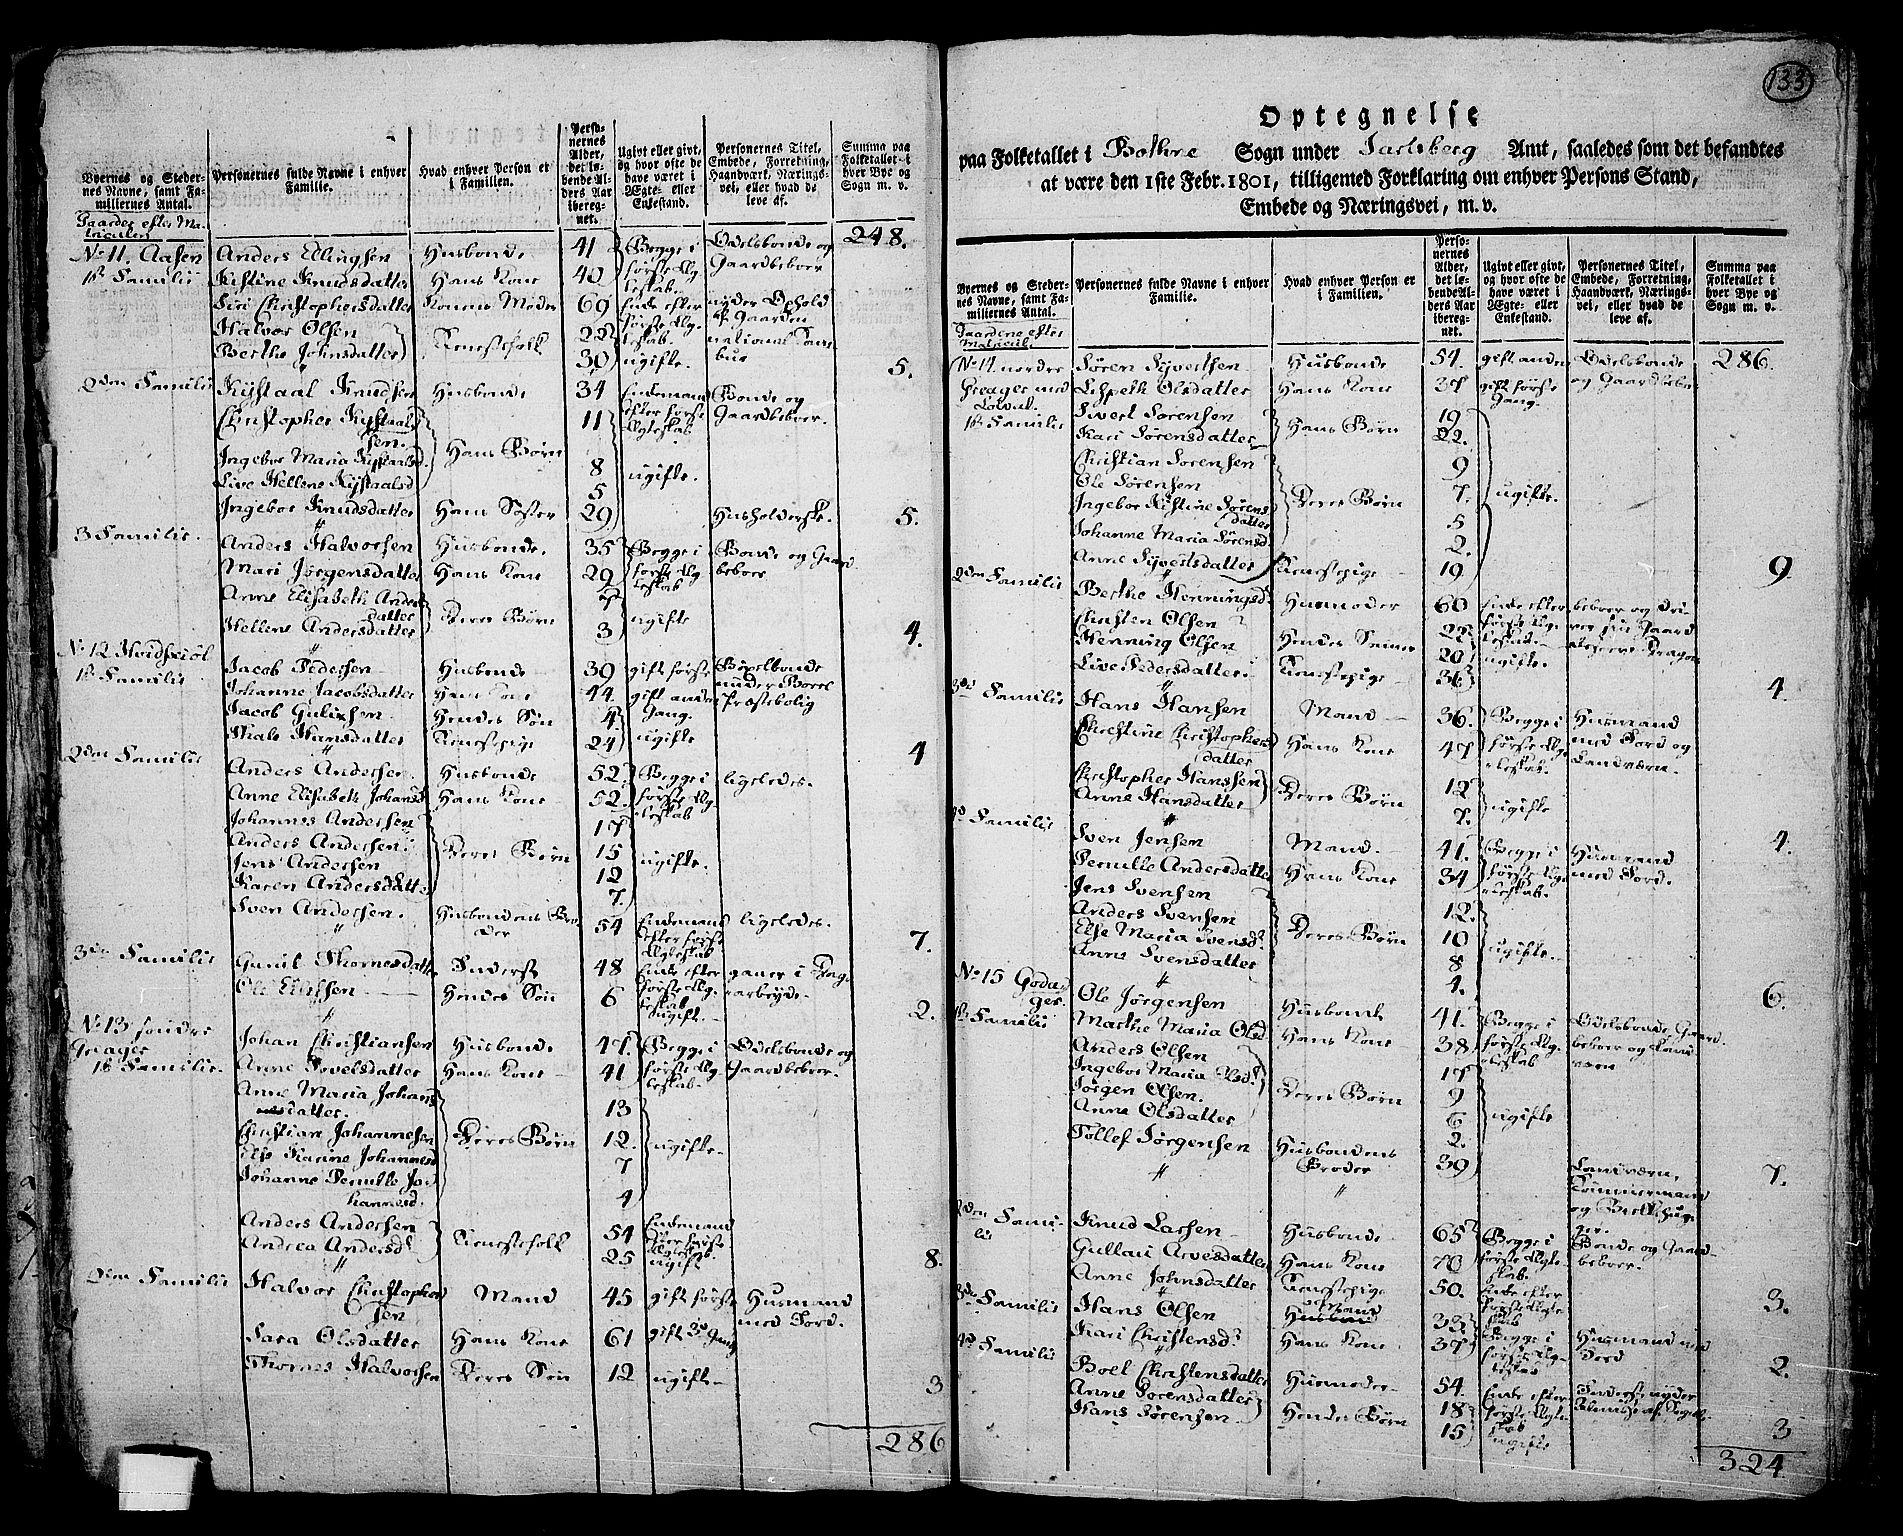 133
Byernes og Stedernes Navne, samt Familiernes Antal.
Personernes fulde Navne i enhver Familie.
Hvad enhver Person er i Familien.
Personernes Alder, det løbende Alders Aar iberegnet.
Ugivt eller givt, og hvor ofte de have været i Ægte- eller Enkestand.
Personernes Titel, Embede, Forretning, Haandværk, Næringsvei, eller hvad de leve af.
Summa paa Folketallet i hver Bye og Sogn m. v.
Gaarder efter Matriculen
248.
No 11. Aasen
1ste Familie
Anders Ellingsen Husbonde 41 Begge i første Ægteskab Odelsbonde og Gaardbeboer
Kistine Knudsdatter Hans Kone 40
Siri Christophersdatter Konens Moder 69 Enke efter første Ægteskab nyder Ophold af Gaarden
Halvor Olsen Tienestefolk 22 ugifte. national
Berthe Johnsdatter 30
5.
2den Familie
Kystaal Knudsen Husbonde 34 Enkemand efter første Ægteskab Bonde og Gaardbeboer
Christopher Kystaalsen Hans Børn 11
Ingebor Maria Kystaalsd. 8 ugifte.
Live Hellene Kystaalsd 5
Ingebor Knudsdatter Hans Søster 29 Husholderske.
5.
3 Familie.
Anders Halvorsen Husbonde. 35 Begge i første Ægteskab Bonde og Gaardbeboer
Mari Jørgensdatter Hans Kone 29
Anne Elisabeth Andersdatter Deres Børn 7 ugifte
Hellene Andersdatter 3
4.
No 12
1ste Familie
Jacob Pedersen Husbonde 39 gift første
Johanne Jacobsdatter Hans Kone 44. gift anden Gang. Præstebolig
Jacob Gulixsen Hendes Søn 4 ugifte
Hansdatter Tienestepige 24
4
2den Familie
Anders Andersen Husbonde 52. Begge i første Ægteskab ligeledes.
Anne Elisabeth Johansd Hans Kone 52.
Johannes Andersen Deres Børn 17 ugifte.
Anders Andersen 15
Jens Andersen 12
Karen Andersdatter 7.
Sven Andersen. Husbondens Broder 54 Enkemand efter første Ægteskab ligeledes.
7.
3die Familie
Gunil Thornesdatter Inderst 48 Enke efter første Ægteskab gaaer i Dagarbeyde
Ole Hendes Søn 6 ugift.
2.
No 13 søndre
1ste Familie.
Johan Christiansen Husbonde 47. Begge i første Ægteskab Odelsbonde og Gaardbeboer.
Anne Hans Kone 41
Anne Maria Johansdatter. Deres Børn 13 ugifte
Christian Johannesen 12.
Else Karine Johannesd 7
Johanne Pernille Johannesd. 4
Anders Andersen Tienestefolk 54 Enkemand efter første Ægteskab.
Andrea Andersd 25 ugift
8.
2den Familie
Halvor Christophersen Mand 45 gift første Husmand med Jord.
Sara Olsdatter Hans Kone 61 gift 3d Gang
Thornes Halvorsen Deres Søn 12 ugift
3
286
Optegnelse
paa Folketallet i Bothne Sogn under Jarlsberg Amt, saaledes som det befandtes
at være den 1ste Febr. 1801, tilligemed Forklaring om enhver Persons Stand,
Embede og Næringsvei, m. v.
Byernes og Stedernes Navne, samt Familiernes Antal.
Personernes fulde Navne i enhver Familie.
Hvad enhver Person er i Familien.
Personernes Alder, det løbende Alders Aar iberegnet.
Ugivt eller givt, og hvor ofte de have været i Ægte- eller Enkestand.
Personernes Titel, Embede, Forretning, Haandværk, Næringsvei, eller hvad de leve af.
Summa paa Folketallet i hver Bye og Sogn m. v.
Gaardene efter Matricul.
286.
No 14 nordre
1ste Familie
Søren Syvertsen Husbonde 54. gift anden Odelsbonde og Gaardbeboer
Lisbeth Olsdatter Hans Kone 37 gift første Gang.
Sivert Sørensen Hans Børn 19 ugifte.
Kari Sørensdatter 22.
Christian Sørensen Deres Børn 9
Ole Sørensen 7.
Ingebor Kistine Sørensdatter 5
Johanne Maria Sørensd 2.
Anne Syvertsdatter Tienestepige 19
9
2den Familie
Berthe Henningsd. Husmoder 60 Enke efter første Ægteskab beboer og driver sin Gaard
Christen Olsen Hendes Sønner 22 ugifte. Reserve Dragon
Henning Olsen 20
Live Pedersdatter. Tienestepige 36
4
3die Familie
Hans Hansen Mand 36. Begge i første Ægteskab. Husmand med Jord og Landværn.
Christine Christophersdatter Hans Kone 47
Christopher Hanssen Deres Børn 12 ugifte
Anne Hansdatter 7.
4.
4d Familie
Sven Jensen Mand 41. Begge i første Ægteskab. Husmand med Jord.
Pernille Andersdatter Hans Kone 34
Jens Svensen Deres Børn 12. ugifte.
Anders Svensen 10
Else Maria Svensd. 8
Anne Svensdatter 4.
6.
No 15 Godager.
1ste Familie
Ole Jørgensen Husbonde 41. Begge i første Ægteskab Odelsbonde, Gaardbeboer og
Marthe Maria Olsd Hans Kone 38.
Anders Olsen Deres Børn 17 ugifte
Ingebor Maria Olsd. 9
Jørgen Olsen. 6
Anne Olsdatter 2.
Tollef Jørgensen Husbondens Broder 39 Landværn, Tømmermand og
7.
2den Familie
Knud Larsen Husbonde 65 Begge i første Ægteskab. Bonde og Gaardbeboer.
Arvesdatter Hans Kone 70
Anne Johnsdatter Tienestepige 50. Enke efter første Ægteskab
3.
3die Familie
Hans Olsen Mand 33. Begge i første Ægteskab Husmand med Jord
Kari Christensd. Hans Kone 37
2.
4d Familie
Boel Christensdatter Husmoder 54. Enke efter første Ægteskab Inderst, nyder Almisse af Sognet
Anne Sørensdatter Hendes Børn 18 ugifte
Hans Sørensen 15
3
324